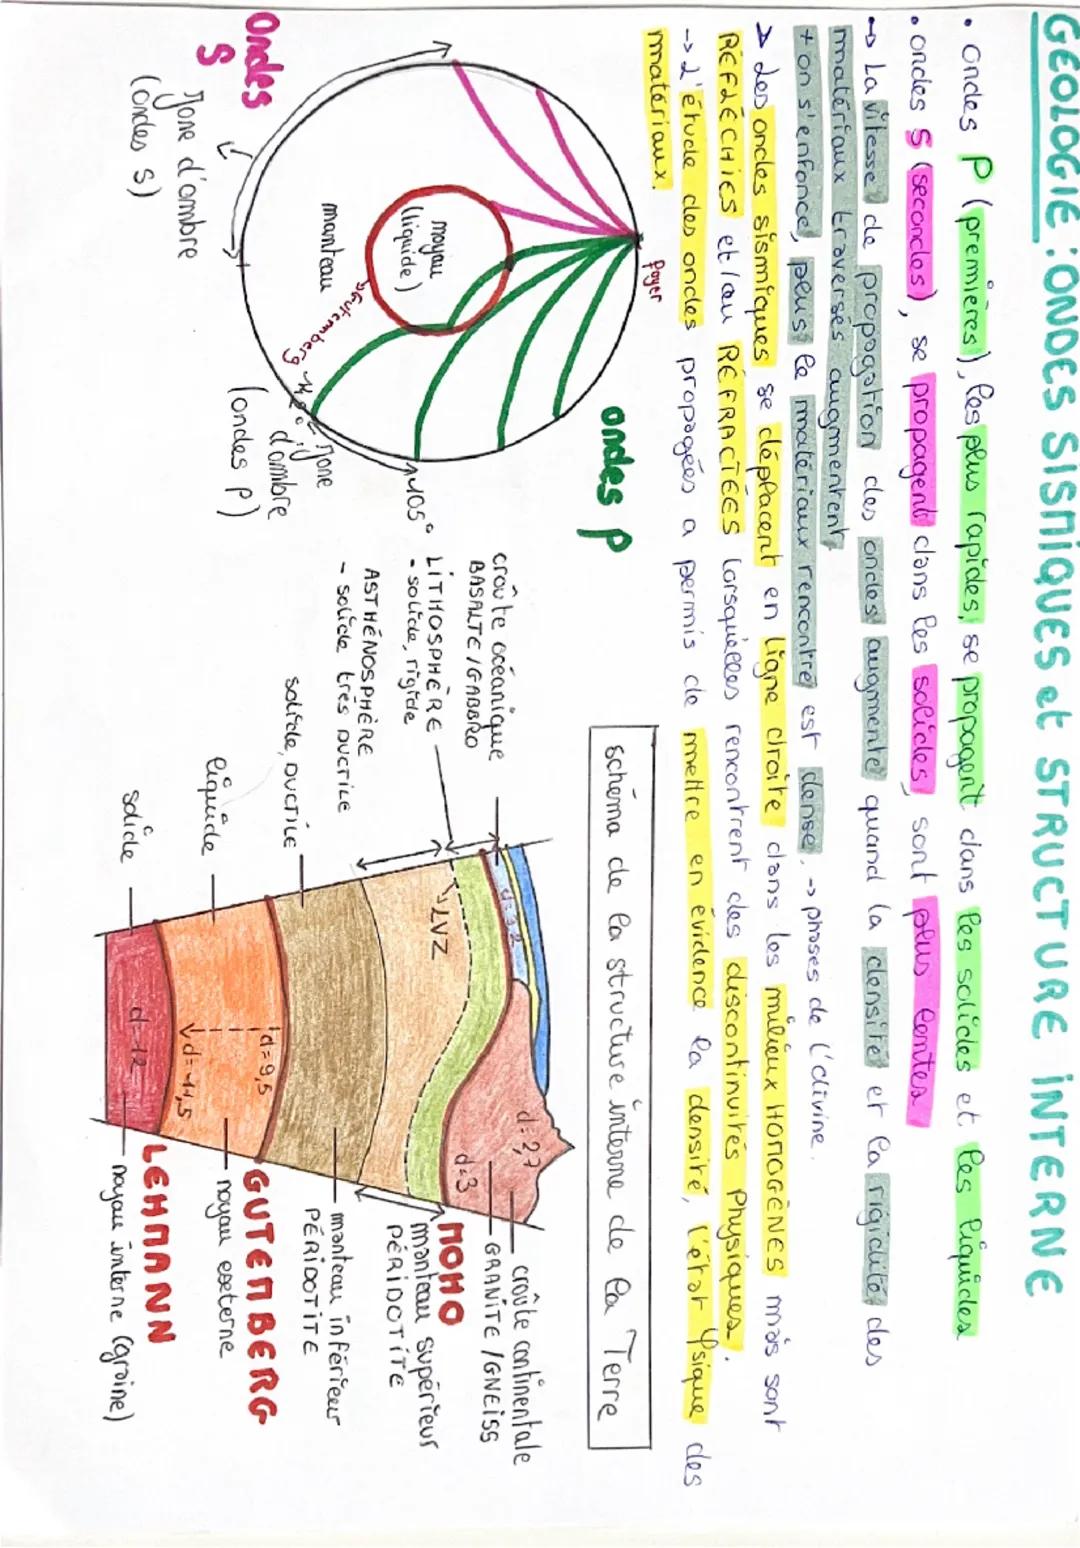 GÉOLOGIE : ONDES SISMIQUES et STRUCTURE INTERNE
• ondes P (premières), les plus rapides, se propagent dans les solides et les liquides
• ondes S (secondes), se propagent dans les solides, sont plus lentes
→ La vitesse de propagation des ondes augmente quand la densité et la rigidité des
matériaux traversés augmentent
+ on s'enfonce, plus le matériaux rencontré est dense. → phases de l'olivine.
> Les ondes sismiques se déplacent en ligne droite dans les milieux HOMOGÈNES mais sont
RÉFLÉCHIES et/ou RÉFRACTÉES lorsqu'elles rencontrent des discontinuités physiques.
→ L'étude des ondes propagées a permis de mettre en évidence la densité, l'état physique des
matériaux.
foyer
ondes P
Ondes
S
noyau
(liquide)
manteau
Gutemberg
105°
142°
zone
d'ombre
(ondes P)
zone d'ombre
(ondes S)
schéma de la structure interne de la Terre
croûte océanique
BASALTE / GABBRO
LITHOSPHÈRE
- solide, rigide
ASTHÉNOSPHÈRE
- solide très DUCTILE
solide, DUCTILE
liquide
solide
LVZ
d=3,2
d=2,7
d=3
d=9,5
d=11,5
d=12
croûte continentale
GRANITE / GNEISS
MOHO
manteau supérieur
PÉRIDOTITE
manteau inférieur
PÉRIDOTITE
GUTEMBERG
noyau externe
LEHMANN
noyau interne (graine)